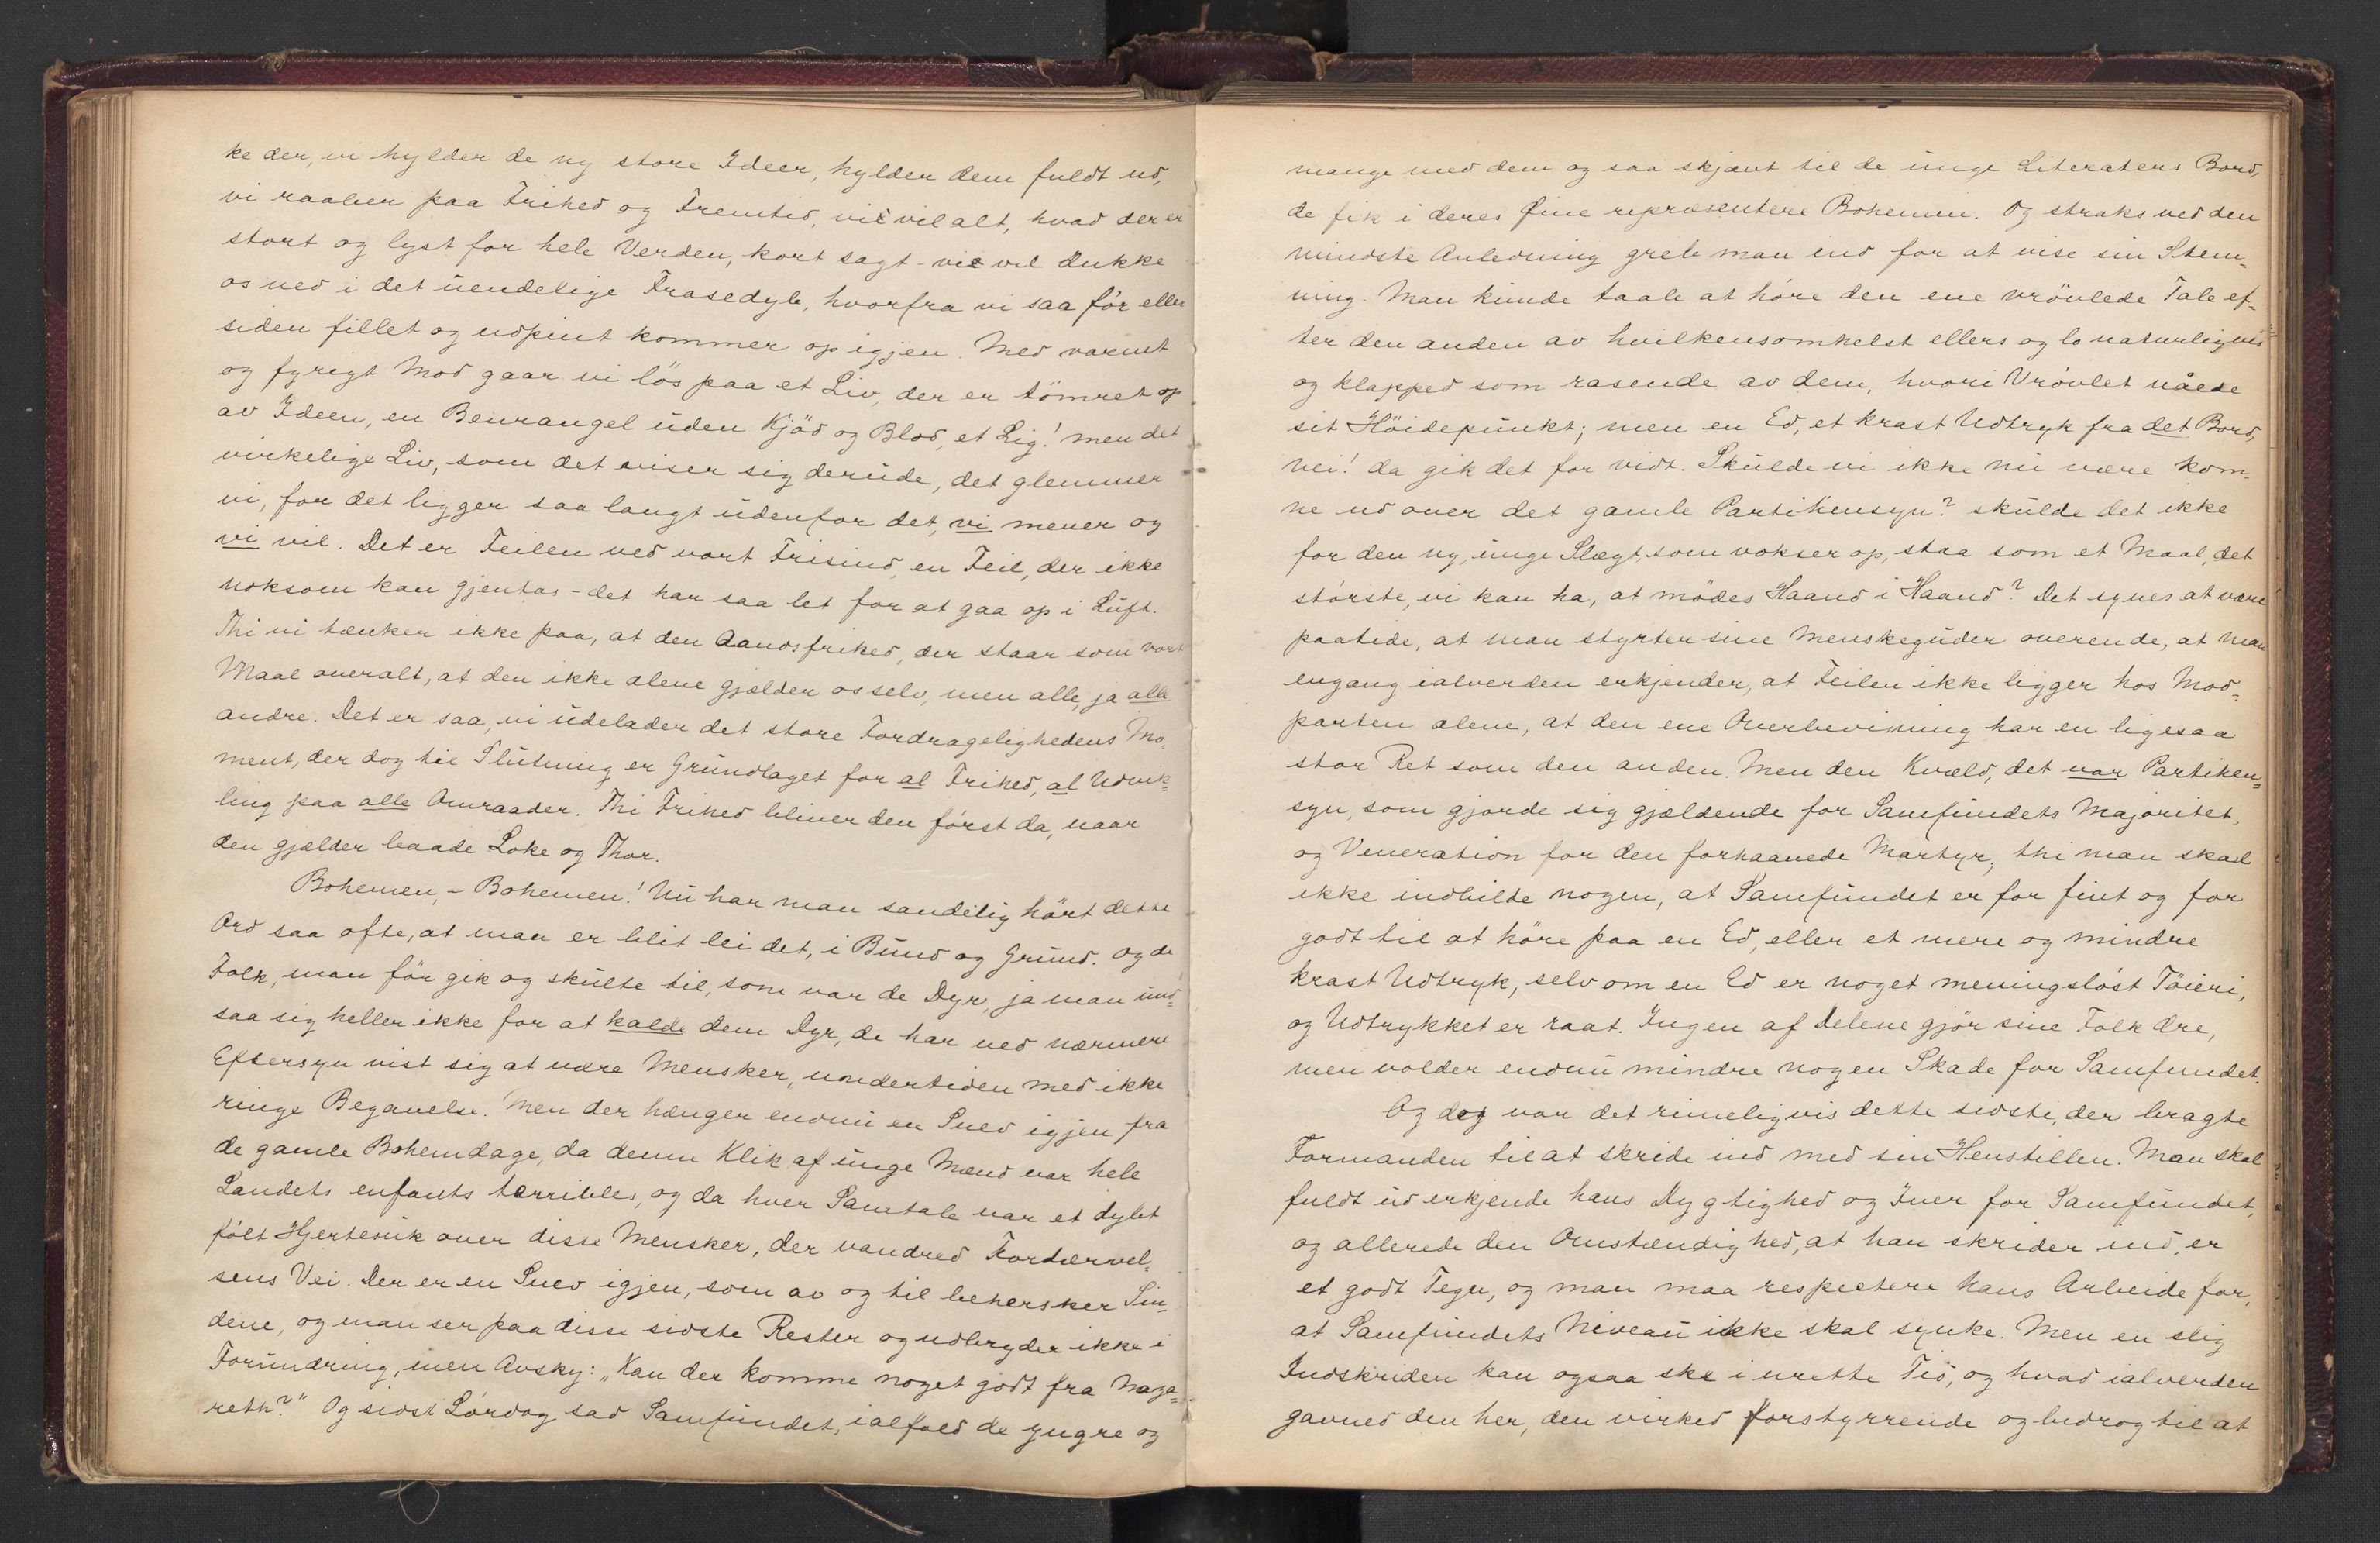 ke der, vi hylder de ny store Ideer, hylder dem fuldt ud,
vi raaber paa Frihed og Fremtid, vi vil alt, hvad der er
stort og lyst for hele Verden, kort sagt - vi vil dukke
os ned i det uendelige Frasedyb, hvorfra vi saa før eller
siden fillet og udpint kommer op igjen. Med varmt
og fyrigt Mod gaar vi løs paa et Liv, der er tømret op
av Ideen, en Benrangel uden Kjød og Blod, et Lig! men det
virkelige Liv, som det viser sig derude, det glemmer
vi, for det ligger saa langt udenfor det, vi mener og
vi vil. Det er Feilen ved vort Frisind, en Feil, der ikke
noksom kan gjentas - det har saa let for at gaa op i Luft.
Thi vi tænker ikke paa, at den Aandsfrihed, der staar som vort
Maal overalt, at den ikke alene gjælder os selv, men alle, ja alle
andre. Det er saa, vi udelader det store Fordragelighedens Mo-
ment, der dog til Slutning er Grundlaget for al Frihed, al Udvik-
ling paa alle Omraader. Thi Frihed bliver den først da, naar
den gjælder baade Loke og Thor.
Bohemen, - Bohemen! Nu har man sandelig hørt dette
Ord saa ofte, at man er blit lei det, i Bund og Grund. Og de
Folk, man før gik og skulte til, som var de Dyr, ja man und-
saa sig heller ikke for at kalde dem Dyr, de har ved nærmere
Eftersyn vist sig at være Mensker, undertiden med ikke
ringe Begavelse. Men der hænger endnu en Snev igjen fra
de gamle Bohemdage, da denne Klik af unge Mænd var hele
Landets enfants terribles, og da hver Samtale var et dybt
følt Hjertesuk over disse Mensker, der vandred Fordærvel-
sens Vei. Der er en Snev igjen, som av og til behersker Sin-
dene, og man ser paa disse sidste Rester og udbryder ikke i
Forundring, men Avsky: „Kan der komme noget godt fra Naza-
reth?" Og sidst Lørdag sad Samfundet, ialfald de yngre og
mange med dem og saa skjævt til de unge Literaters Bord,
de fik i deres Øine repræsentere Bohemen. Og straks ved den
mindste Anledning greb man ind for at vise sin Stem-
ning. Man kunde taale at høre den ene vrøvlede Tale ef-
ter den anden av hvilkensomhelst ellers og lo naturligvis
og klapped som rasende av dem, hvori Vrøvlet nåede
sit Høidepunkt; men en Ed, et krast Udtryk fra det Bord,
nei! da gik det for vidt. Skulde vi ikke nu være kom-
ne ud over det gamle Partihensyn? skulde det ikke
for den ny, unge Slægt, som vokser op, staa som et Maal, det
største, vi kan ha, at mødes Haand i Haand? Det synes at være
paatide, at man styrter sine Menskeguder overende, at man
engang ialverden erkjender, at Feilen ikke ligger hos Mod-
parten alene, at den ene Overbevisning har en ligesaa
stor Ret som den anden. Men den Kvæld, det var Partihen-
syn, som gjorde sig gjældende for Samfundets Majoritet,
og Veneration for den forhaanede Martyr; thi man skal
ikke indbilde nogen, at Samfundet er for fint og for
godt til at høre paa en Ed, eller et mere og mindre
krast Udtryk, selv om en Ed er noget meningsløst Tøieri,
og Udtrykket er raat. Ingen af Delene gjør sine Folk Ære,
men volder endnu mindre nogen Skade for Samfundet.
Og dog var det rimeligvis dette sidste, der bragte
Formanden til at skride ind med sin Henstillen. Man skal
fuldt ud erkjende hans Dygtighed og Iver for Samfundet,
og allerede den Omstændighed, at han skrider ind, er
et godt Tegn, og man maa respectere hans Arbeide for,
at Samfundets Niveau ikke skal synke. Men en slig
Indskriden kan ogsaa ske i urette Tid, og hvad ialverden
gavned den her, den virked forstyrrende og bidrog til at